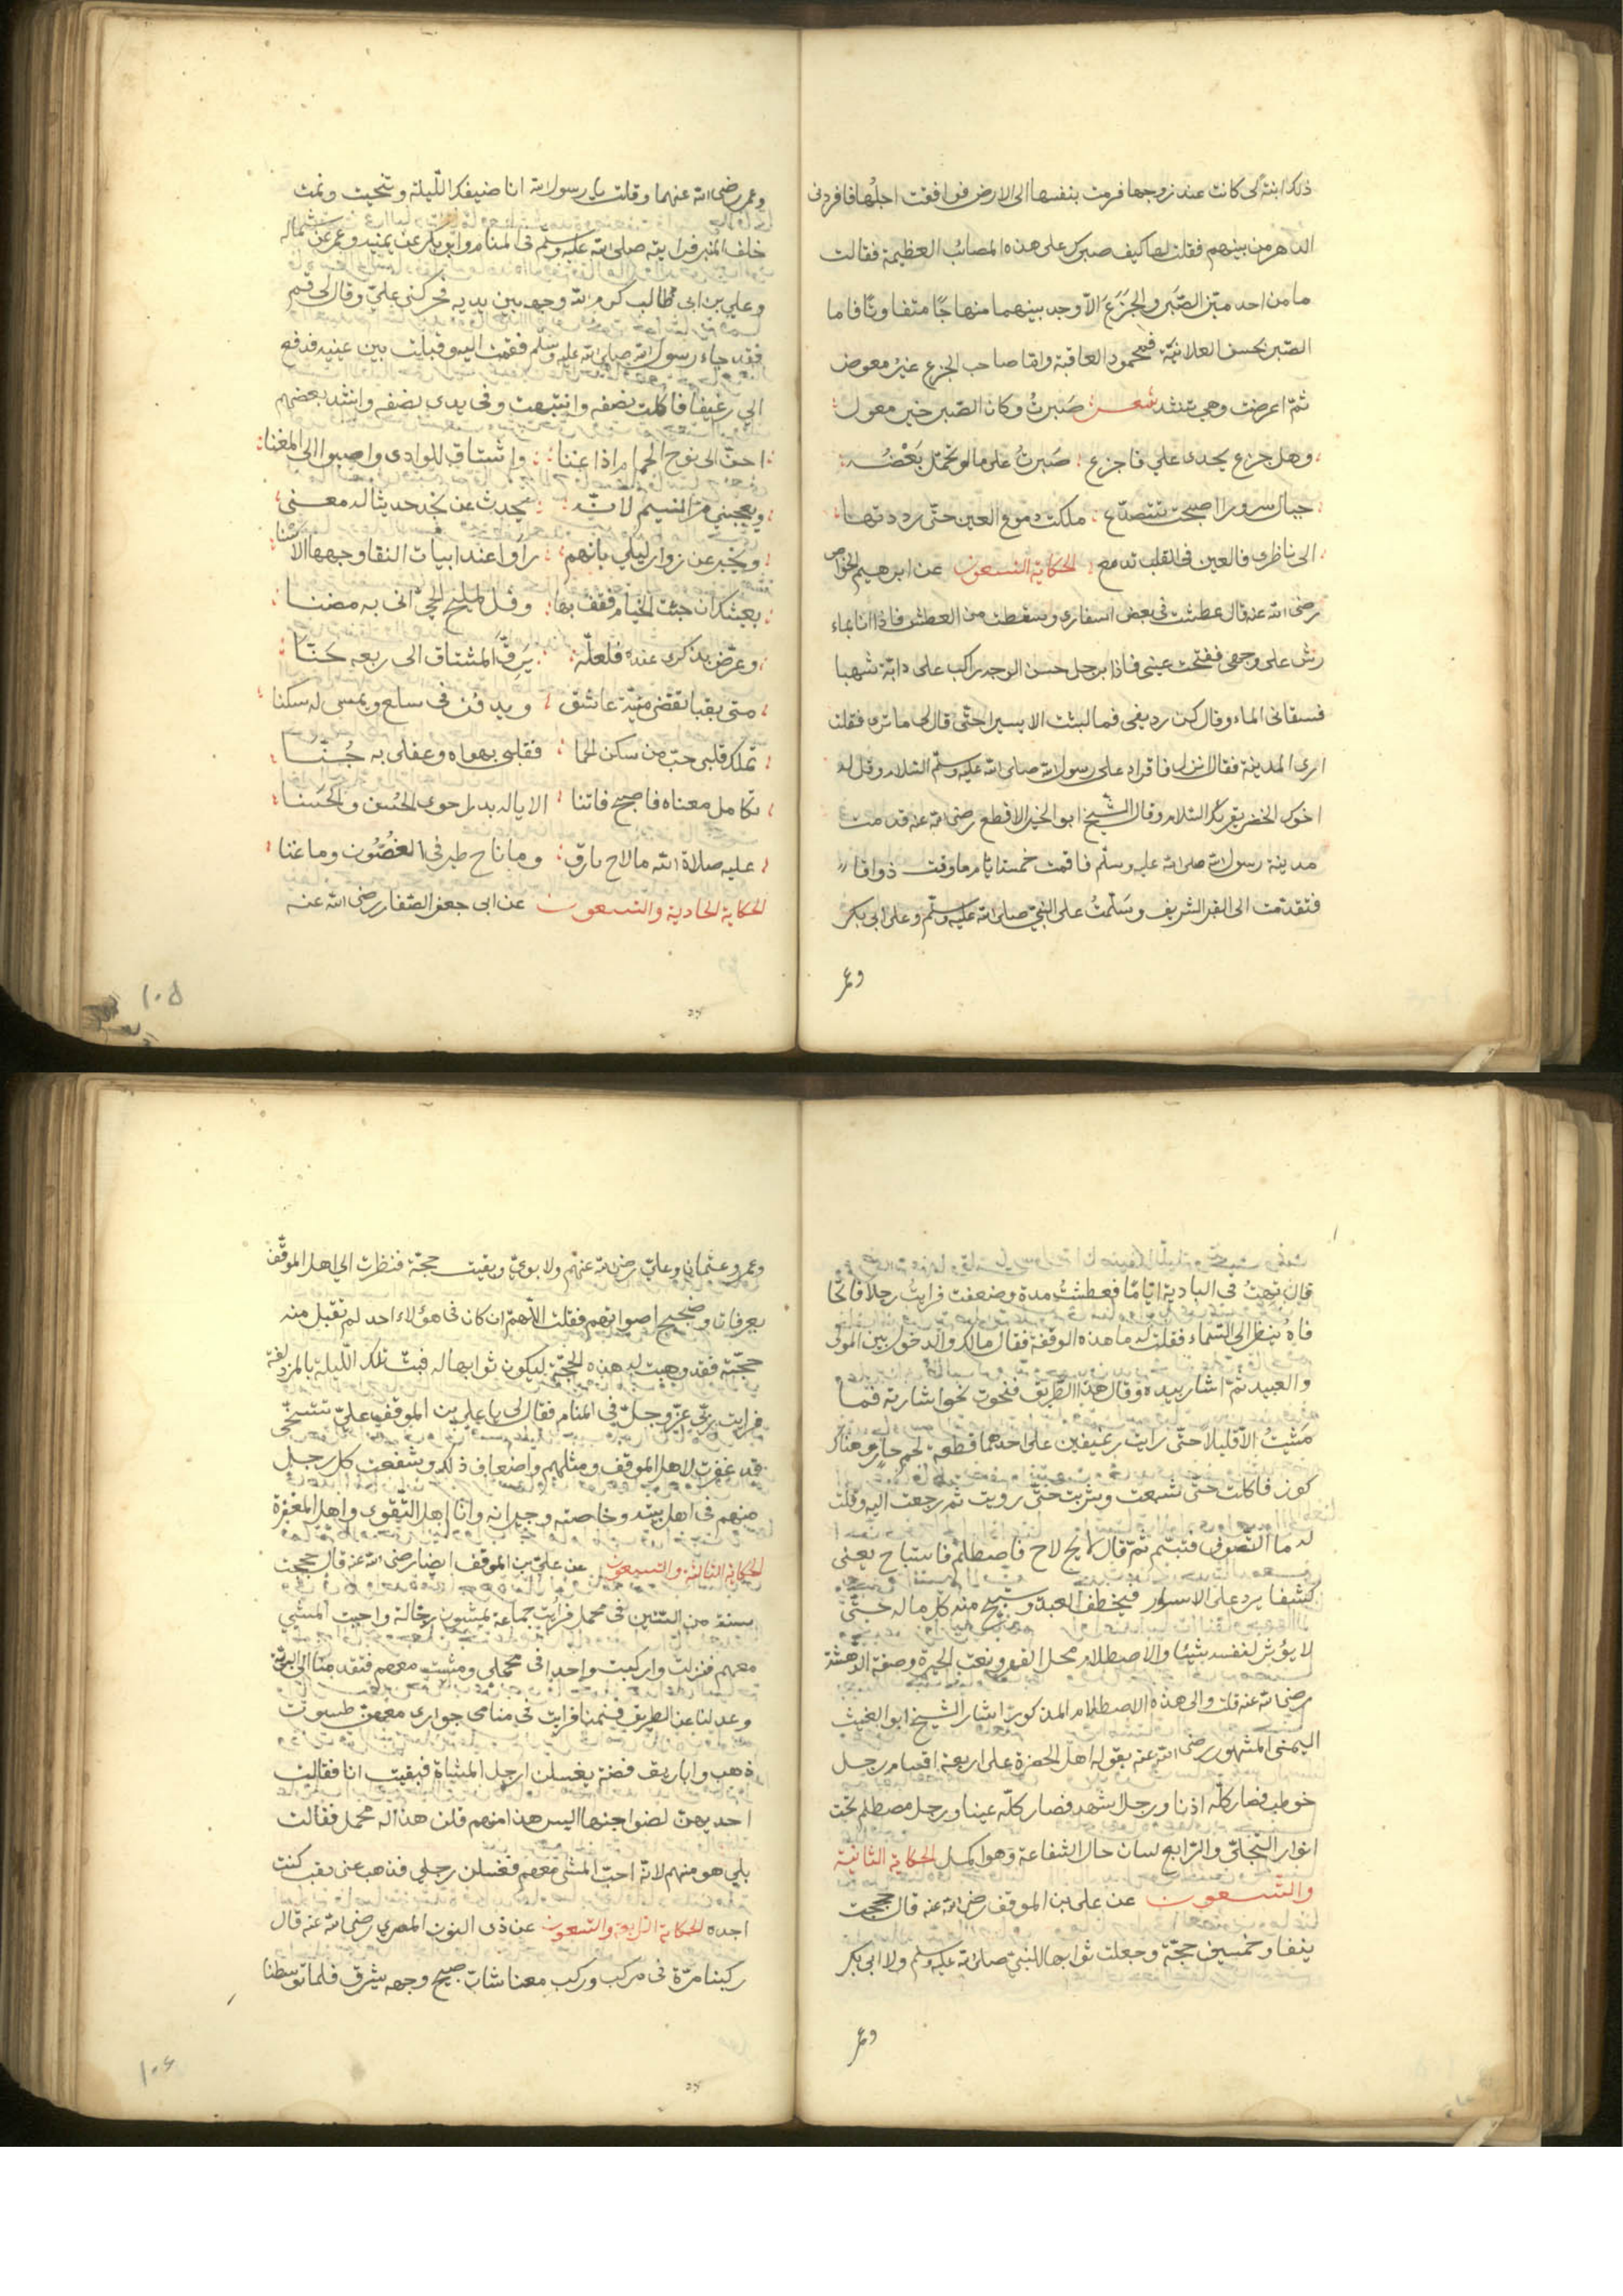 ذلك ابنة لى كانت عند زوجها فرمت بنفسها الى الارض فوافقت اجلها فافردنى
الدهر من بينهم فقلت لها كيف صبرك على هذه المصائب العظيمة فقالت
ما من احد ميّز الصّبر والجَزَعَ الّا وجد بينهما منهاجًا متفاوتًا فاما
الصّبر بحسن العلانيّة فمحمود العاقبة واما صاحب الجزع غيرُ معوض
ثمّ اعرضت وهى تنشد شعر صَبرتُ وكان الصّبر خير معول
وهل جزع يجدى علي فاجزع صَبرتُ على ما لو تحمّل بَعْضُه
جبال سرورا اصبحت تتصدّع ملكت دموع العين حتّى رددتها
الى ناظرى فالعين فى القلب تدمع الحكاية التسعون عن ابرهيم الخواص
رضى الله عنه قال عطشت فى بعض اسفارى وسقطت من العطش فاذا انا بماء
رش على وجهى ففتحت عينى فاذا برجل حسن الوجه راكب على دابّة شهبا
فسقانى الماء وقال كن رديفى فما لبثت الا يسيرا حتّى قال لى ما ترى فقلت
ارى المدينة فقال انزل فاقراء على رسول الله صلى الله عليه وسلّم السّلام وقل له
اخوك الخضر يقريك السّلام وقال الشّيخ ابو الخير الاقطع رضى الله عنه قدمت
مدينة رسول الله صلى الله عليه وسلّم فاقمت خمسة ايّام ما ذقت ذواقا
فتقدّمت الى القبر الشريف وسَلّمتُ على النّبيّ صلى الله عليه وسلّم وعلى ابى بكر
وعمر
وعمر رضى الله عنهما وقلت يا رسول الله انا ضيفك اللّيلة وتنحيت ونمت
خلف المنبر فرايته صلى الله عليه وسلّم فى المنام وابو بكر عن يمينه وعمر عن شماله
وعلي بن ابى طالب كرم الله وجهه بين يديه فحركنى عليّ وقال لى قم
فقد جاء رسول الله صلى الله عليه وسلم فقمت اليه وقبلت بين عينيه فدفع
الي رغيفا فاكلت نصفه وانتبهت وفى يدى نصفه وانشد بعضهم
احنّ الى نوح الحمام اذا غنا واشتاق للوادى واصبوا الى المغنا
ويعجبني مرّ النسيم لانّه يحدث عن نجد حديثا له معنى
ويخبر عن زوار ليلى بانهم راوا عند ابيات النقا وجهها الاسنا
بعيشك ان جئت الخيام فقف بها وقل لمليح الحي انى به مضنا
وعرّض بذكرى عنده فلعلّه يَرِقّ لمشتاق الى ربعه حنّا
متى بقبا تقضى منيّة عاشق ويدفن فى سلع ويمسى له سكنا
تملك قلبى حبّ من سكن الحما فقلبى بهواه وعقلى به جُنّا
تكامل معناه فاصبح فاتنا الا يا له بدرا حوى الحُسن والحسنا
عليه صلاة الله ما لاح بارق وما ناح طير فى الغصُون وما غنا
الحكاية الحادية والتسعون عن ابى جعفر الصّفار رضى الله عنه
١٠٥
قال تهتُ فى البادية ايّامًا فعطشتُ مدة وضعفت فرايتُ رجلا فاتحًا
فاه ينظر الى السّماء فقلت له ما هذه الوقفة فقال مالك والدخول بين المولى
والعبيد ثمّ اشار بيده وقال هذا الطّريق فنحوت نحو اشارته فما
مَشيتُ الّا قليلا حتّى رايت رغيفين على احدهما قطعة لحم حارّ وهناك
كوز فاكلت حتّى شبعت وشربت حتّى رويت ثم رجعت اليه وقلت
له ما التّصوّف فتبسّم ثمّ قال لايح لاح فاصطلم فاستباح يعنى
كشفا يرد على الاسرار فيخطف العبد ويستبيح منه كل ما له حتّى
لا يؤثر لنفسه شيئا والاصطلام محل القهر ونعت الحيرة وصفة الدّهشة
رضى الله عنه قلت والى هذه الاصطلام المذكور اشار الشّيخ ابو الغيث
اليمنى المشهور رضى الله عنه بقوله اهل الحضرة على اربعة اقسام رجل
خوطب فصار كلّه اذنا ورجل اشهد فصار كلّه عينا ورجل مصطلم تحت
انوار التّجلّى والرّابع لسان حال الشفاعة وهو اكمل الحكاية الثانية
والتسعون عن على بن الموقف رضى الله عنه قال حججت
نيفا وخمسين حجّة وجعلت ثوابها للنبيّ صلى الله عليه وسلم ولابى بكر
وعمر
وعمر وعثمان وعليّ رضى الله عنهم ولابويّ وبقيت حجّة فنظرت الي اهل الموقف
بعرفات وضجيج اصواتهم فقلت اللّهمّ ان كان فى هؤلاء احد لم تقبل منه
حجّته فقد وهبت له هذه الحجّة ليكون ثوابها له فبتّ تلك اللّيلة بالمزدلفة
فرايت ربّي عزّ وجلّ فى المنام فقال لى يا علي بن الموقف عليّ تتسخّى
قد غفرت لاهل الموقف ومثلهم واضعاف ذلك وشفعت كل رجل
منهم فى اهل بيته وخاصته وجيرانه وانا اهل التّقوى واهل المغفرة
الحكاية الثالثة والتسعون عن عليّ بن الموقف ايضا رضى الله عنه قال حججت
سنة من السّنين فى محمل فرايت جماعة يمشون رجّالة واحببت المشي
معهم فنزلت واركبت واحدا فى محملى ومشيت معهم فتقدمنا الى البريّة
وعدلنا عن الطريق فنمنا فرايت فى منامى جوارى معهنّ طسوت
ذهب واباريق فضة يغسلن ارجل المشاة فبقيت انا فقالت
احديهنّ لصواحبها اليس هذا منهم قلن هذا له محمل فقالت
بلى هو منهم لانّه احبّ المشى معهم فغسلن رجلي فذهب عنى تعب كنت
اجده الحكاية الرّابعة والتسعون عن ذى النون المصري رضى الله عنه قال
ركبنا مرّة فى مركب وركب معنا شابّ صبيح وجهه يشرق فلما توسطنا
١٠٦